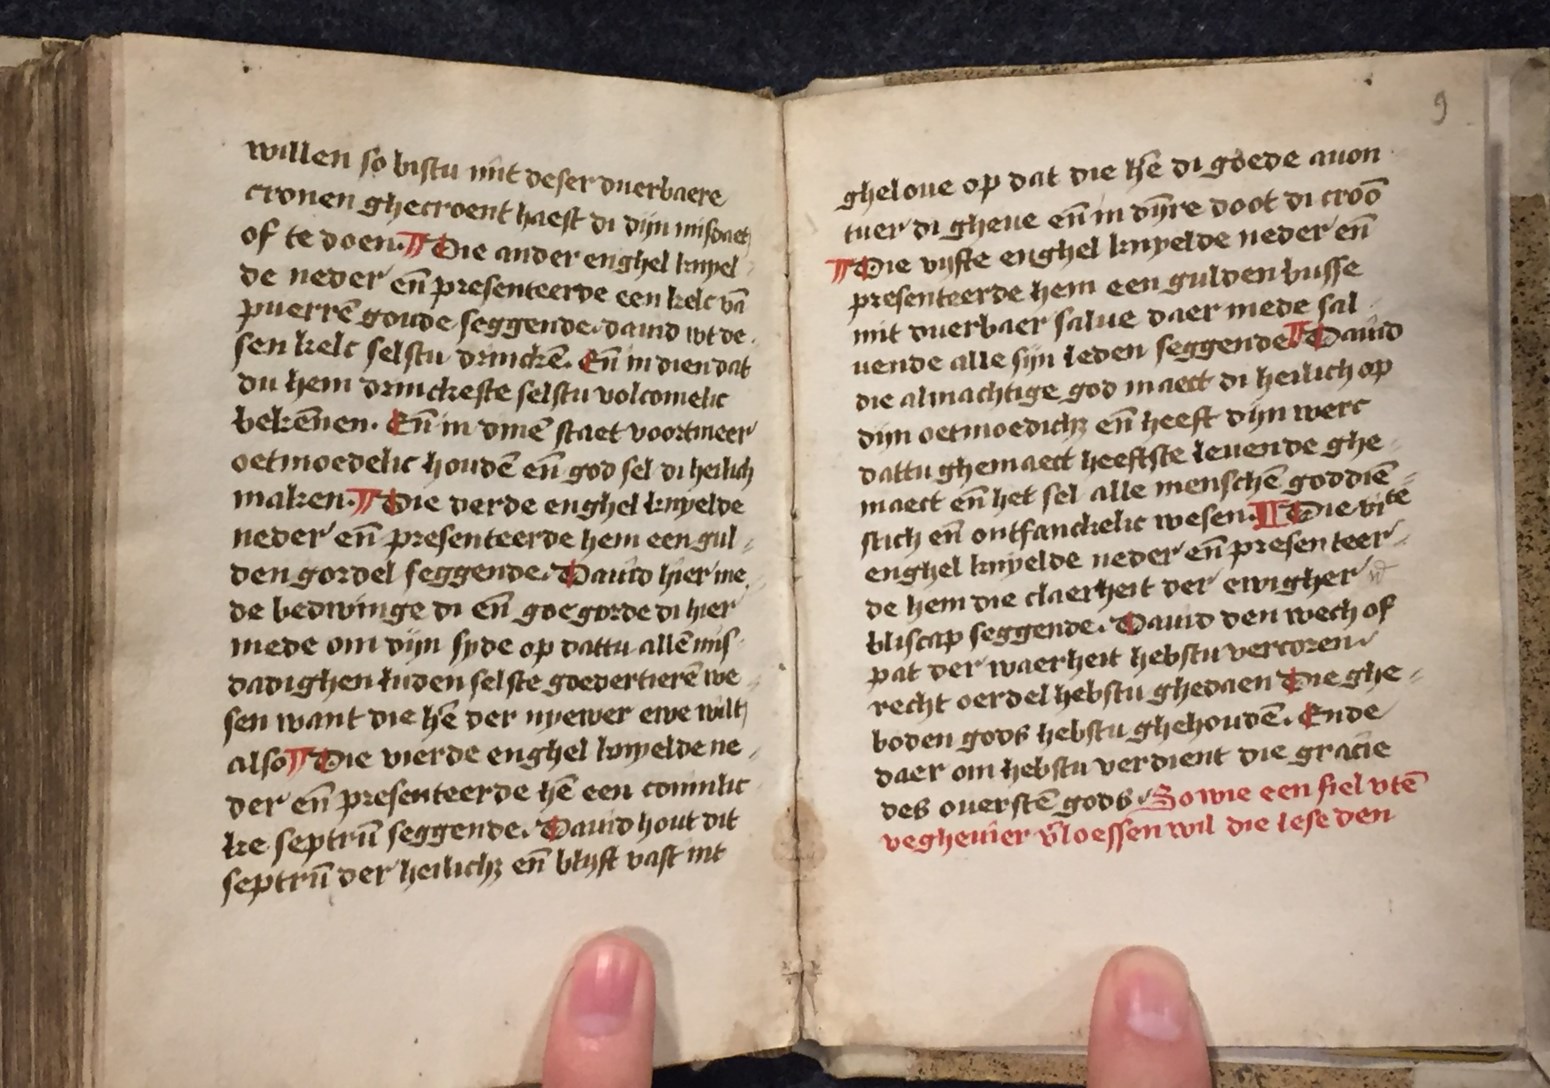 willen so bistu mit deser duerbaere
cronen ghecroent haest di dijn misdaet
of te doen. Die ander enghel knyel
de neder en̄ presenteerde een kelc vā
puerrē goude seggende. dauid wt de
sen kelc selstu drinckē. En̄ in dien dat
du hem drinckeste selstu volcomelic
bekēnen. En̄ in dinē staet voortmeer
oetmoedelic houdē en̄ god sel di heilich
maken. Die derde enghel knyelde
neder en̄ presenteerde hem een gul
den gordel seggende. Dauid hier me
de bedwinge di en̄ goegorde di hier
mede om dijn syde op dattu allē mis
dadighen luden selste goedertierē we
sen want die hē der nyewer ewe wilt
also Die vierde enghel knyelde ne
der en̄ presenteerde hē een coninlic
ke septrū seggende. Dauid hout dit
septrū der heilichꝫ en̄ blijft vast int
9
gheloue op dat die hē di goede auon
tuer di gheue en̄ in dijre doot di croō
Die vijfte enghel knyelde neder en̄
presenteerde hem een gulden busse
mit duerbaer salue daer mede sal
uende alle sijn leden seggende Dauid
die almachtige god maect di heilich op
dijn oetmoedichꝫ en̄ heeft dijn werc
dattu ghemaect heeftste leuende ghe
maect en̄ het sel alle menschē goddiē
stich en̄ ontfanckelic wesen. Die viᵗᵉ
enghel knyelde neder en̄ presenteer
de hem die claerheit der ewigher
bliscap seggende. Dauid den wech of
pat der waerheit hebstu vercoren
recht oerdel hebstu ghedaen Die ghe
boden gods hebstu ghehoudē. Ende
daer om hebstu verdient die gracie
des ouerstē gods. So wie een siel vtē
veghevier v̄loessen wil die lese den